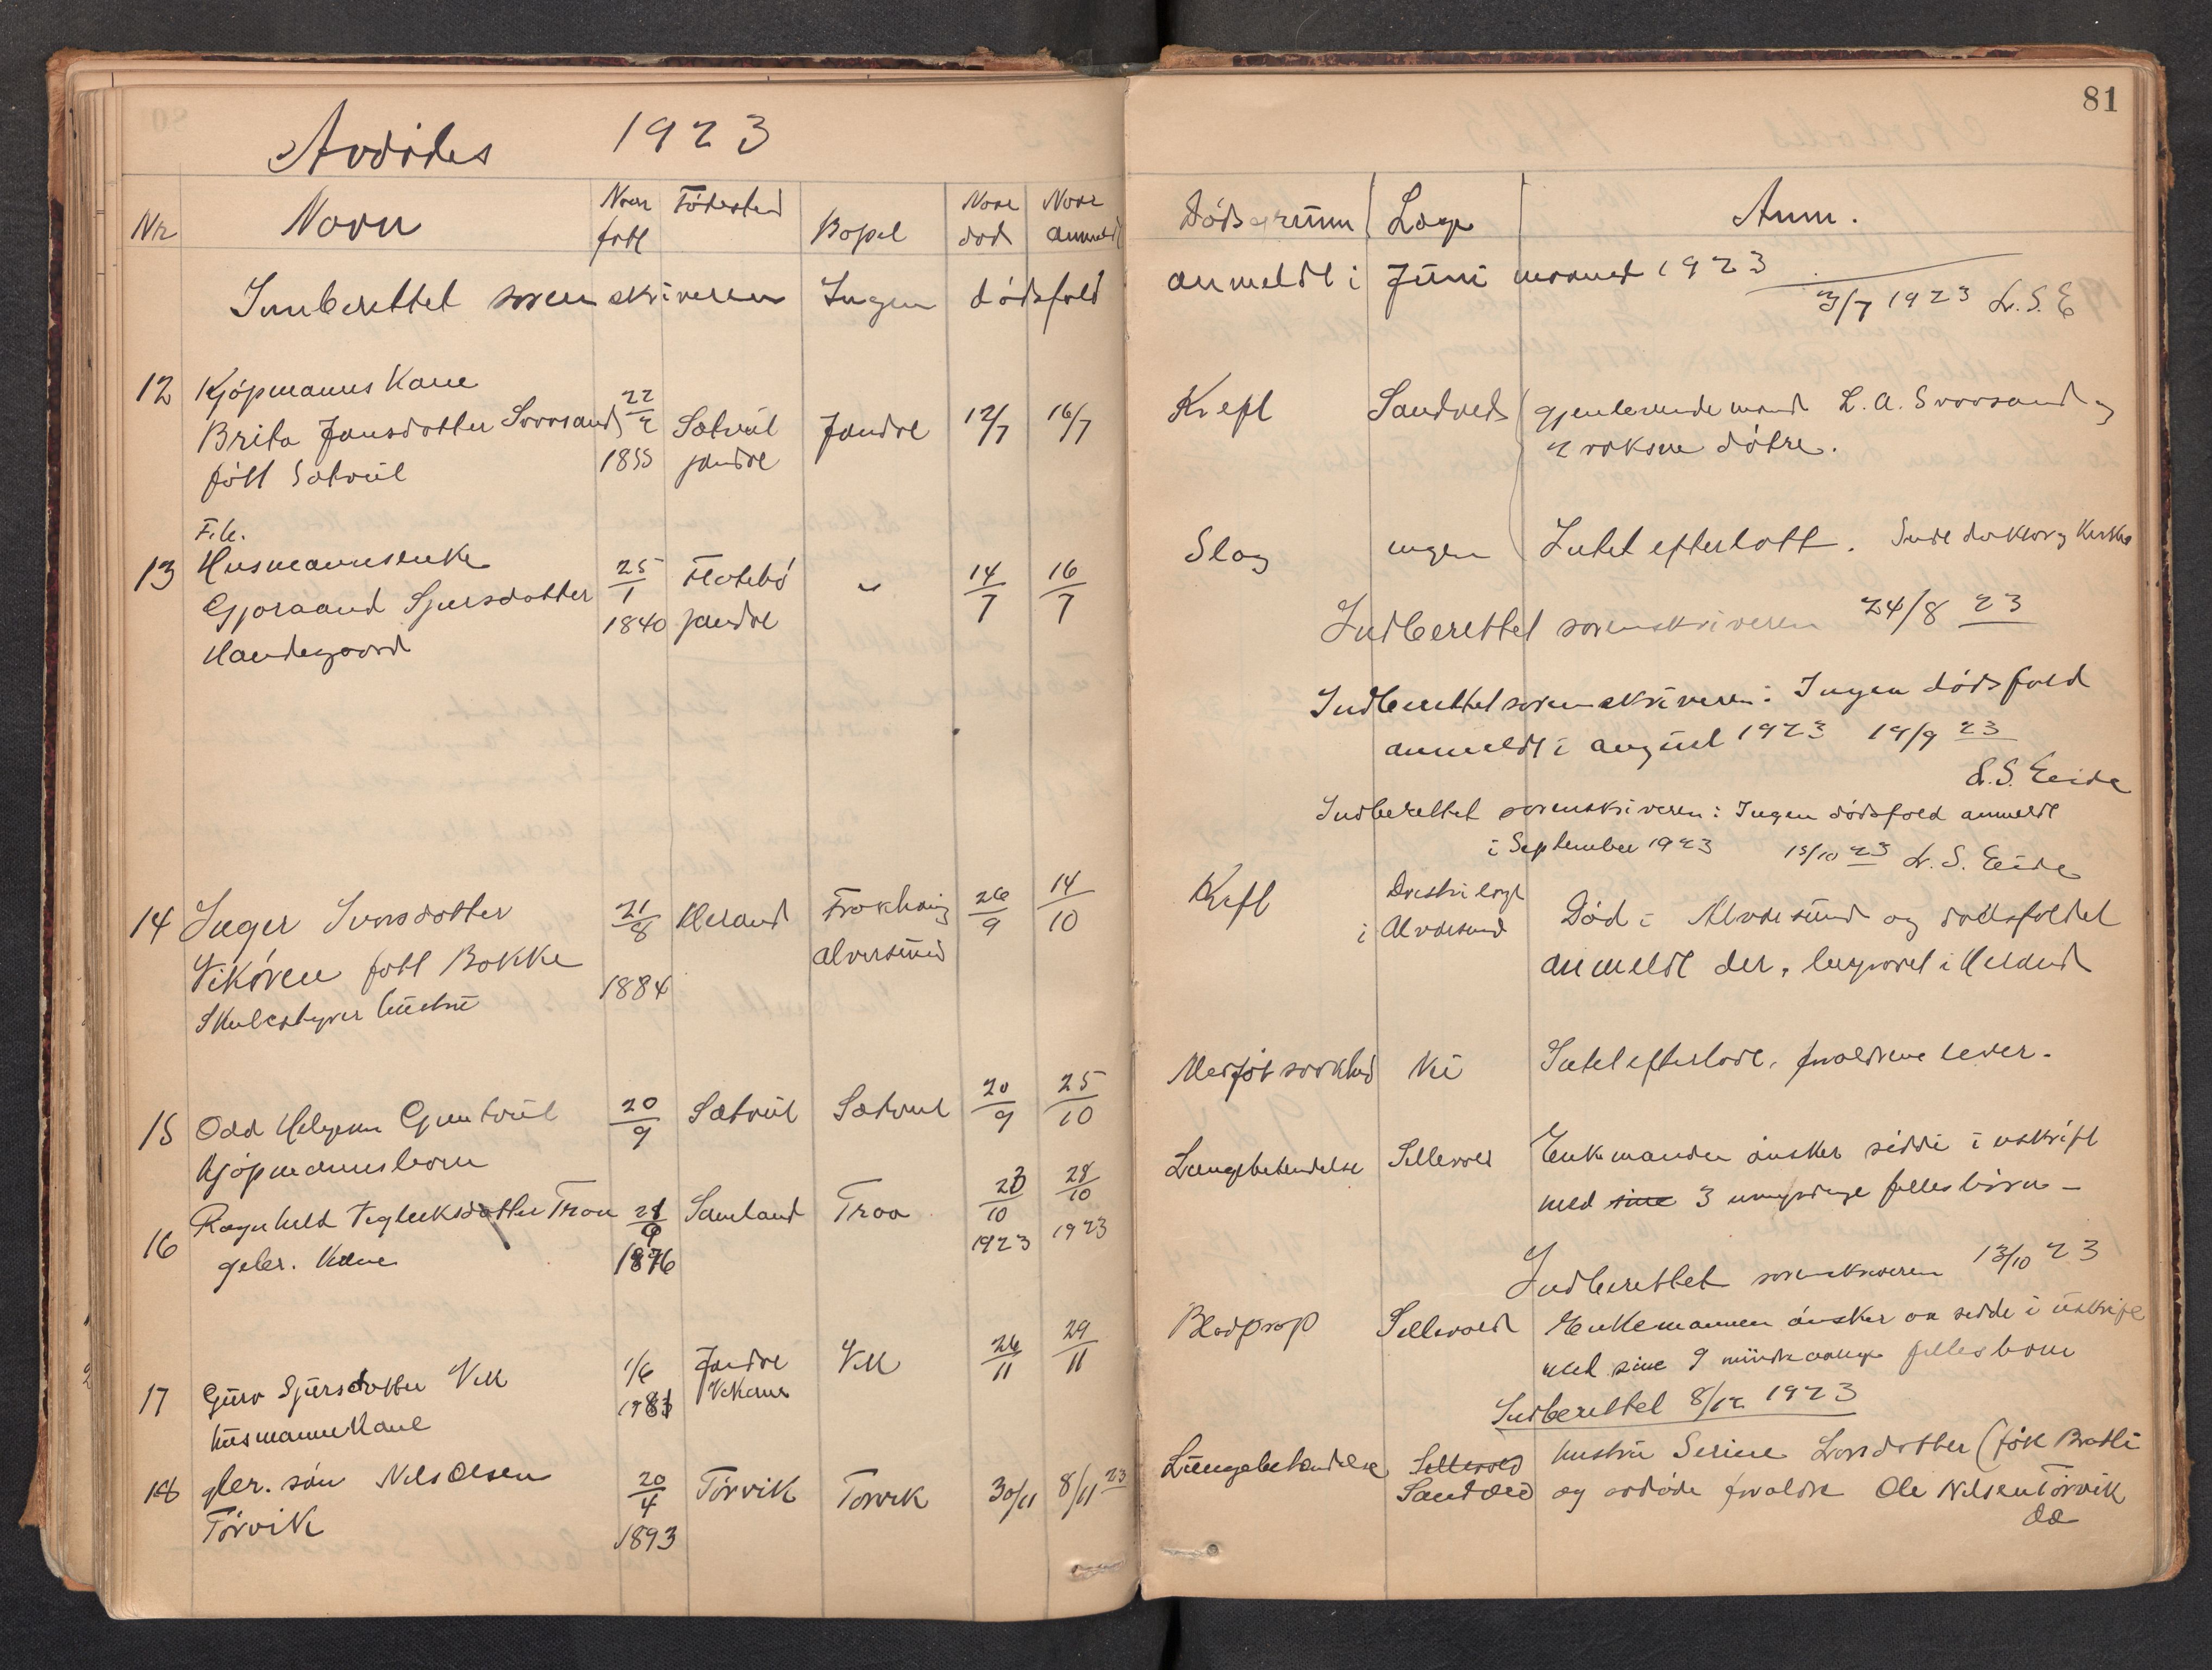 81
Avdødes 1923
Nr Navn Naar født Fødested Bopel Naar død Naar anmeldt Dødsgrunn Læge Anm.
Innberettet sorenskriveren Ingen dødsfald anmeldt i Juni maaned 1923
3/7 1923 L.S.E
12 Kjøpmanns Kane
Brita Jansdotter Svaasand 22/2 Sætveit Jondal 12/7 16/7 Kreft Sandved gjenlevende mand L. A. Svaasand og
født Sætveit 1855 Jondal 2 voksne døtre.
F.k.
13 Husmannsenke
Gjøraand Sjursdotter 25/1 Flotebø " 14/7 16/7 Slag ingen Intet efterlatt.
Handegaard 1840 Jondal
Indberettet sorenskriveren 24/8 23
Indberettet sorenskriveren: Ingen dødsfald
anmeldt i august 1923 19/9 23
L.S. Eide
Indberettet sorenskriveren: Ingen dødsfald anmeldt
i September 1923 15/10 23 L.S. Eide
14 Inger Ivarsdotter 21/8 Herand 26/9 14/10 Kreft i Alversund Død i Alversund og dødsfaldet
Vikøren født Bakke 1884 Alversund anmeldt der, begravet i Herand
Skulestyrer hustru
15 Odd Helgesen 20/9 Sætveit Sætveit 20/9 25/10 Medfødt svakhed Nei Intet efterladt, foreldrene lever.
kjøpmannsbarn
16 Ragnhild Troa 28/9 Samland Troa 20/10 28/10 Lungebetendelse Sellevold Enkemanden ønsker sidde i uskift
gbr. Kane 1876 1923 1923 med sine 3 umyndige felles børn -
Indberettet sorenskriveren 13/10 23
17 Guro Sjursdotter Vik 1/6 Jondal Vik 26/11 29/11 Blodprop Sellevold Enkemannen ønsker aa sidde i uskifte
husmannskane 1883 med sine 9 mindreaarige felles barn
Indberettet 8/12 1923
18 gbr. søn Nels Olsen 20/4 Tørvik Tørvik 30/11 8/11 23 Lungebetændelse Sellevold Sandved hustru Serine Larsdotter (født Bratli
Tørvik 1893 og avdøde foreldre Ole Nilsen Tørvik